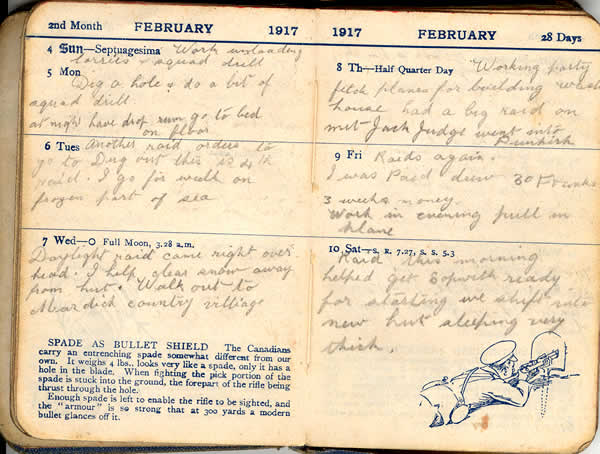 2nd Month FEBRUARY 1917
4 Sun—Septuagesima Work unloading
lorries & squad drill
5 Mon
Dig a hole & do a bit of
squad drill
at night have drop rum go to bed
on floor
6 Tues Another raid orders to
go to Dug out this is 4th
raid. I go for walk on
frozen part of sea
7 Wed—O Full Moon, 3.28 a.m.
Daylight raid came right over
head. I help clear snow away
from hut. Walk out to
Mardick country village
SPADE AS BULLET SHIELD The Canadians
carry an entrenching spade somewhat different from our
own. It weighs 4 lbs., looks very like a spade, only it has a
hole in the blade. When fighting the pick portion of the
spade is stuck into the ground, the forepart of the rifle being
thrust through the hole.
Enough spade is left to enable the rifle to be sighted, and
the "armour" is so strong that at 300 yards a modern
bullet glances off it.
1917 FEBRUARY 28 Days
8 Th—Half Quarter Day Working party
fetch planes for building wash
house had a big raid on
Jack Judge went into
Dunkirk
9 Fri Raids again.
I was Paid drew 30 Franks
3 weeks money.
Work in evening pull in
plane
10 Sat—S. R. 7.27, S. S. 5.3
Raid this morning
helped get Sopwith ready
for starting we shift into
new hut sleeping very
thick.